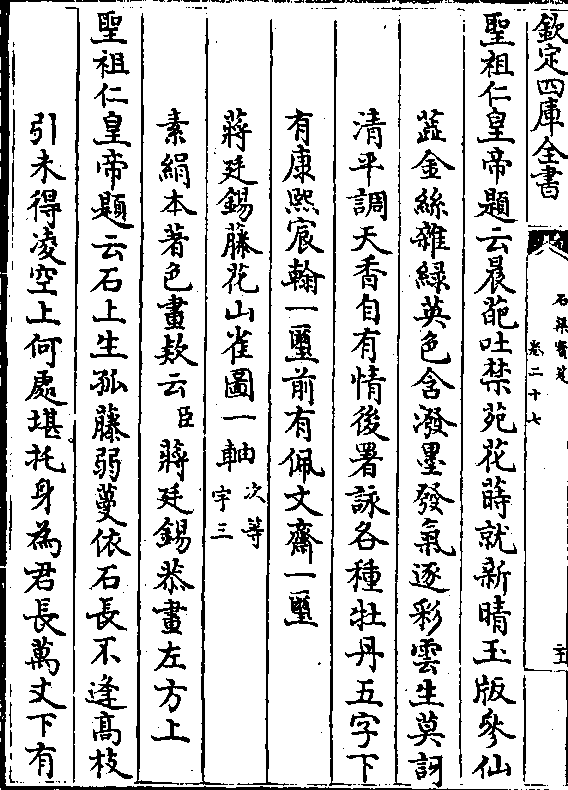 欽定四庫全書
石渠寶笈
卷二十七
聖祖仁皇帝題云晨葩吐禁苑花蒔就新晴玉版參仙
蕋金絲雜綠英色含潑墨發氣逐彩雲生莫訝
清平調天香自有情後署詠各種牡丹五字下
有康熙宸翰一璽前有佩文齋一璽
蔣廷錫藤花山雀圖一軸次等宇三
素絹本著色畫款云臣蔣廷錫恭畫左方上
聖祖仁皇帝題云石上生孤藤弱蔓依石長不逢高枝
引未得凌空上何處堪托身為君長萬丈下有